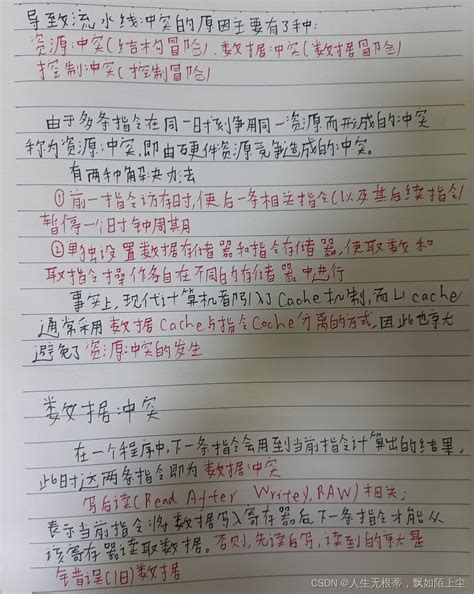 导致流水线冲突的原因主要有3种:
资源冲突(结构冒险)、数据冲突(数据冒险)
控制冲突(控制冒险)
由于多条指令在同一时刻争用同一资源而形成的冲突
称为资源冲突,即由硬件资源竞争造成的冲突。
有两种解决办法
①前一指令访存时,使后一条相关指令(以及其后续指令)
暂停一个时钟周期
②单独设置数据存储器和指令存储器,使取数和
取指令操作各自在不同的存储器中进行
事实上,现代计算机都引入Cache机制,而L1 cache
通常采用数据Cache与指令Cache分离的方式,因此也就
避免了资源冲突的发生
数据冲突
在一个程序中,下一条指令会用到当前指令计算出的结果,
此时这两条指令即为数据冲突
写后读(Read After Write, RAW)相关:
表示当前指令将数据写入寄存器后,下一条指令才能从
该寄存器读取数据。否则,先读后写,读到的就是
错误(旧)数据
CSDN @人生无根蒂，飘如陌上尘